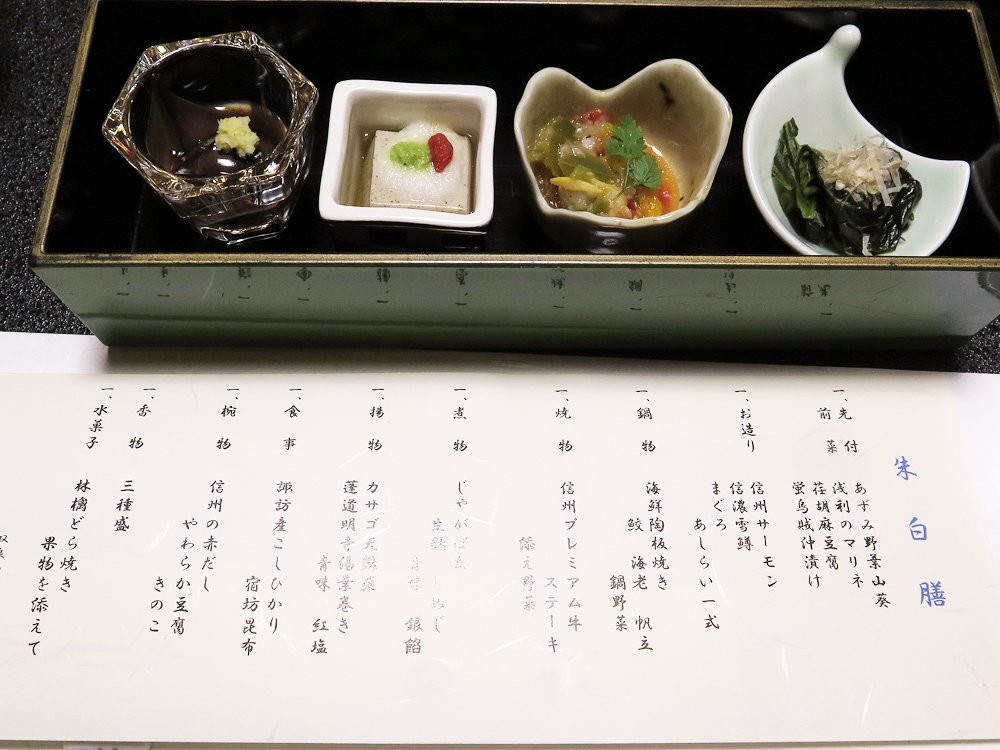 朱白膳
一、先付
前菜
あずみ野葉山葵
浅利のマリネ
荏胡麻豆腐
蛍烏賊沖漬け
一、お造り
信州サーモン
信濃雪鱒
まぐろ
あしらい一式
一、鍋物
海鮮陶板焼き
鮫 海老 帆立
鍋野菜
一、焼物
信州プレミアム牛
ステーキ
添え野菜
一、煮物
じゃがば
銀餡
一、揚物
カサゴ天
蓬道明寺湯葉巻き
青味 紅塩
一、食事
諏訪産こしひかり
宿坊昆布
一、椀物
信州の赤だし
やわらか豆腐
きのこ
一、香物
三種盛
一、水菓子
林檎どら焼き
果物を添えて